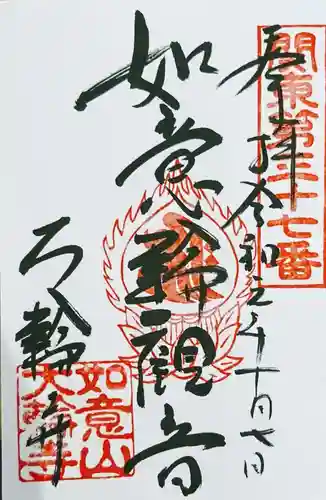 関東第三十七番
奉拝 令和元年十月七日
如意輪観音
大輪寺
如意山
大輪寺